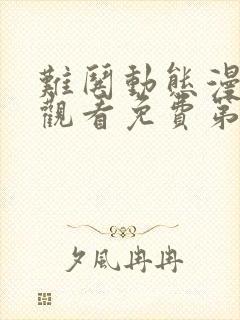 難閱動態漫
觀看免費第
夕風冉冉